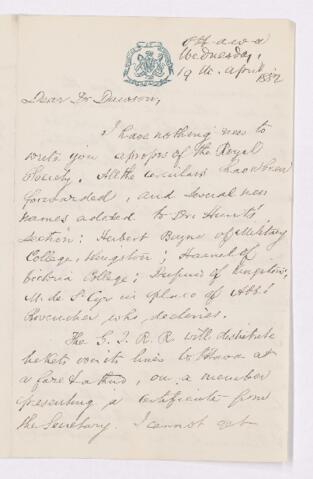 Ottawa
Wednesday,
19th. April 1882
Dear Dr Dawson,
I have nothing new to
write you apropos of the Royal
Society. All the circulars have been
forwarded, and several new
names added to Dr. Hunt's
section: Herbert Bayne of Military
College, Kingston; Haanel of
Victoria College; Dupuis of Kingston,
M. de St Cyr in place of Abbé
Provencher who declines.
The G. T. R. R. will distribute
tickets over its lines to Ottawa at
a fare & a third, on a member
presenting a certificate from
the Secretary. I cannot get